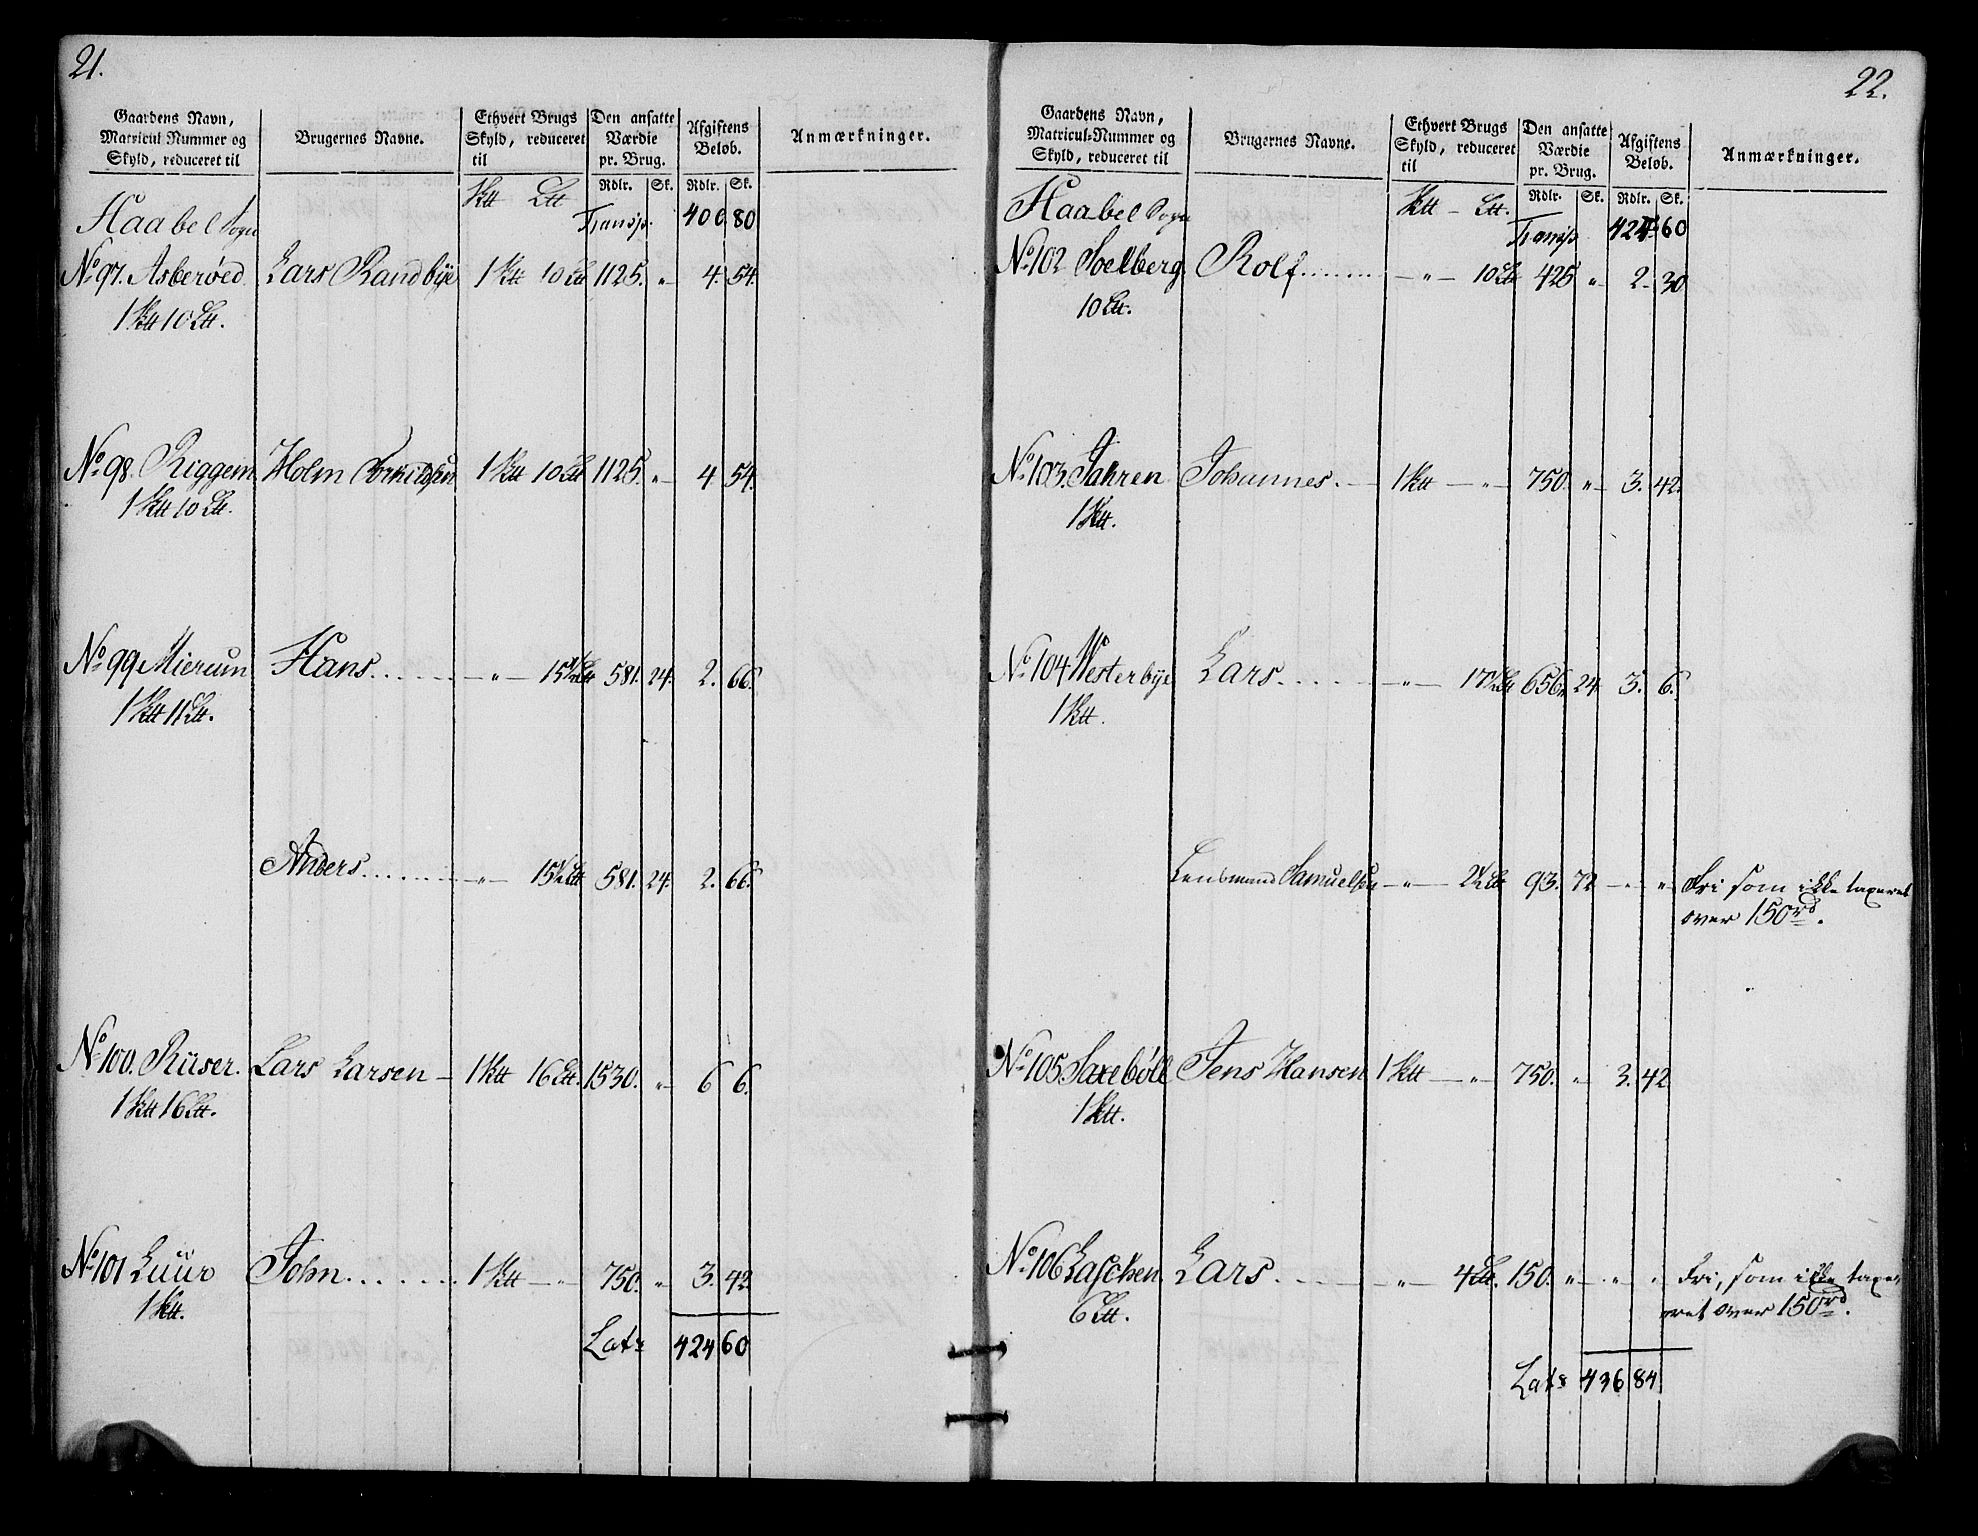 21.
Gaardens Navn, Matricul Nummer og Skyld, reduceret til | Brugernes Navne. | Ethvert Brugs Skyld, reduceret til | Den ansatte Værdie pr. Brug. | Afgiftens Beløb. | Anmærkninger.
Rdlr. Sk. Rdlr. Sk.
Haabel Sogn Ktt Ltt Transp. 400 80
No 97. Asberøed Lars Randbye 1 Ktt 10 Ltt 1125. „ 4. 54.
1 Ktt 10 Ltt.
No 98. Riggem Holm Torkildsen 1 Ktt 10 Ltt 1125. „ 4 54.
1 Ktt 10 Ltt.
No 99 Miereum Hans........ „ 15½ Ltt 581. 24. 2. 66.
1 Ktt 11 Ltt.
Anders........ „ 15½ Ltt 581. 24. 2. 66.
No 100. Riiser. Lars Larsen 1 Ktt 16 Ltt. 1530. „ 6 6.
1 Ktt 16 Ltt.
No 101 Luur John....... 1 Ktt „ 750. „ 3. 42
1 Ktt.
Lats 424 60
22.
Gaardens Navn, Matricul-Nummer og Skyld, reduceret til | Brugernes Navne. | Ethvert Brugs Skyld, reduceret til | Den ansatte Værdie pr. Brug. | Afgiftens Beløb. | Anmærkninger.
Rdlr. Sk. Rdlr. Sk.
Haabel Sogn Ktt Ltt. Transp 424 60
No 102 Soelberg Rolf........ „ 10 Ltt 425 „ 2. 30
10 Ltt.
No 103. Jahren Johannes. 1 Ktt „ 750. „ 3. 42.
1 Ktt.
No 104 Westerbye Lars...... „ 17½ Ltt 656. 24 3. 6.
1 Ktt.
Lensmand Samuelsen „ 2½ Ltt 93. 72 „ „ Fri som ikke taxeret
over 150 rd.
No 105. Saxebøll Jens Hansen 1 Ktt „ 750. „ 3. 42
1 Ktt.
No 106 Laschen. Lars..... „ 4 Ltt. 150. „ „ „ Fri, som ikke taxe-
ret over 150 rd.
6 Ltt.
Lats 436 84